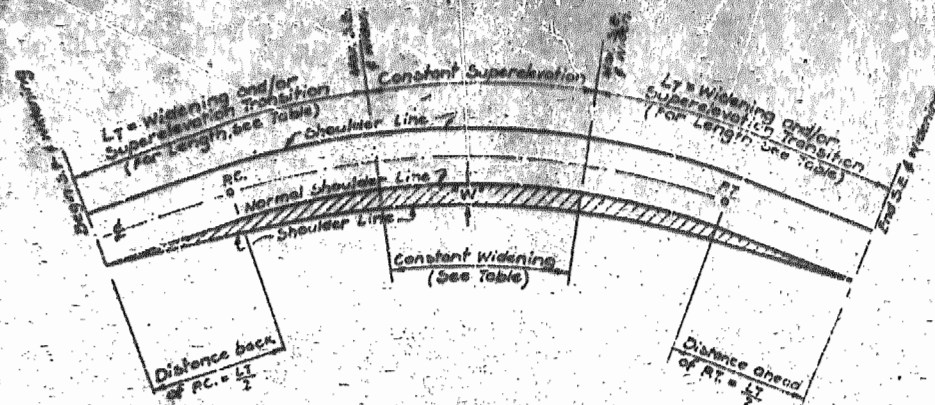 LT = Widening and/or
Superelevation Transition
(For Length, See Table)
Constant Superelevation
LT = Widening and/or
Superelevation Transition
(For Length, See Table)
Shoulder Line
P.C.
P.T.
Normal Shoulder Line
"W"
Shoulder Line
Constant Widening
(See Table)
End S.E. &
Distance back
of P.C. = LT/2
Distance ahead
of P.T. = LT/2